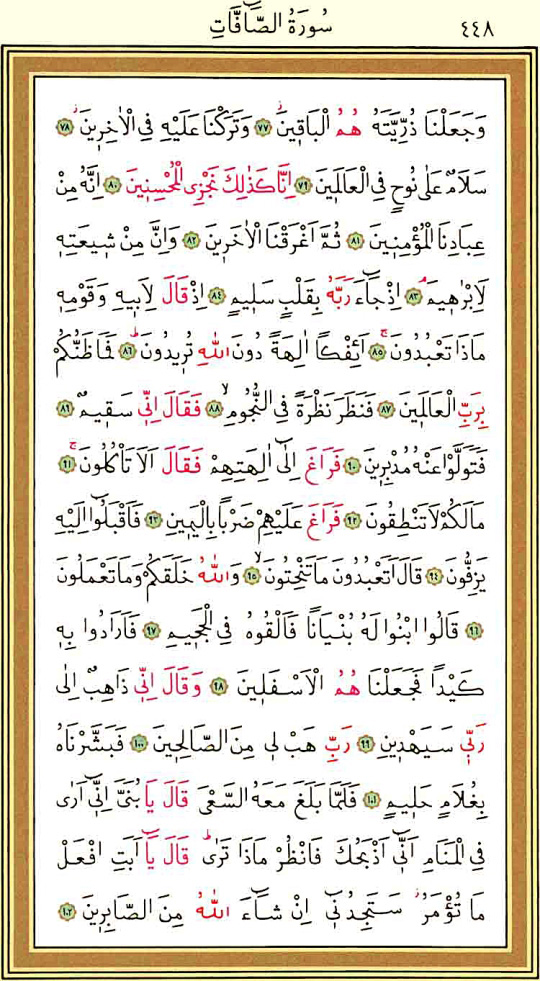 ٤٤٨ سُورَةُ الصَّٓافَّاتِ
وَجَعَلْنَا ذُرِّيَّتَهُ هُمُ الْبَاق۪ينَۘ ﴿٧٧﴾ وَتَرَكْنَا عَلَيْهِ فِي الْاٰخِر۪ينَۘ ﴿٧٨﴾
سَلَامٌ عَلٰى نُوحٍ فِي الْعَالَم۪ينَ ﴿٧٩﴾ اِنَّا كَذٰلِكَ نَجْزِي الْمُحْسِن۪ينَ ﴿٨٠﴾ اِنَّهُ مِنْ
عِبَادِنَا الْمُؤْمِن۪ينَ ﴿٨١﴾ ثُمَّ اَغْرَقْنَا الْاٰخَر۪ينَ ﴿٨٢﴾ وَاِنَّ مِنْ ش۪يعَتِه۪
لَاِبْرٰه۪يمَۢ ﴿٨٣﴾ اِذْ جَٓاءَ رَبَّهُ بِقَلْبٍ سَل۪يمٍ ﴿٨٤﴾ اِذْ قَالَ لِاَب۪يهِ وَقَوْمِه۪
مَاذَا تَعْبُدُونَۚ ﴿٨٥﴾ اَئِفْكًا اٰلِهَةً دُونَ اللّٰهِ تُر۪يدُونَۜ ﴿٨٦﴾ فَمَا ظَنُّكُمْ
بِرَبِّ الْعَالَم۪ينَ ﴿٨٧﴾ فَنَظَرَ نَظْرَةً فِي النُّجُومِۙ ﴿٨٨﴾ فَقَالَ اِنّ۪ي سَق۪يمٌ ﴿٨٩﴾
فَتَوَلَّوْا عَنْهُ مُدْبِر۪ينَ ﴿٩٠﴾ فَرَاغَ اِلٰٓى اٰلِهَتِهِمْ فَقَالَ اَلَا تَأْكُلُونَۚ ﴿٩١﴾
مَالَكُمْ لَا تَنْطِقُونَ ﴿٩٢﴾ فَرَاغَ عَلَيْهِمْ ضَرْبًا بِالْيَم۪ينِ ﴿٩٣﴾ فَاَقْبَلُٓوا اِلَيْهِ
يَزِفُّونَ ﴿٩٤﴾ قَالَ اَتَعْبُدُونَ مَا تَنْحِتُونَۙ ﴿٩٥﴾ وَاللّٰهُ خَلَقَكُمْ وَمَا تَعْمَلُونَ
﴿٩٦﴾ قَالُوا ابْنُوا لَهُ بُنْيَانًا فَاَلْقُوهُ فِي الْجَح۪يمِ ﴿٩٧﴾ فَاَرَادُوا بِه۪
كَيْدًا فَجَعَلْنَا هُمُ الْاَسْفَل۪ينَ ﴿٩٨﴾ وَقَالَ اِنّ۪ي ذَاهِبٌ اِلٰى
رَبّ۪ي سَيَهْد۪ينِ ﴿٩٩﴾ رَبِّ هَبْ ل۪ي مِنَ الصَّالِح۪ينَ ﴿١٠٠﴾ فَبَشَّرْنَاهُ
بِغُلَامٍ حَل۪يمٍ ﴿١٠١﴾ فَلَمَّا بَلَغَ مَعَهُ السَّعْيَ قَالَ يَا بُنَيَّ اِنّ۪ٓي اَرٰى
فِي الْمَنَامِ اَنّ۪ٓي اَذْبَحُكَ فَانْظُرْ مَاذَا تَرٰىۜ قَالَ يَٓا اَبَتِ افْعَلْ
مَا تُؤْمَرُۘ سَتَجِدُن۪ٓي اِنْ شَٓاءَ اللّٰهُ مِنَ الصَّابِر۪ينَ ﴿١٠٢﴾